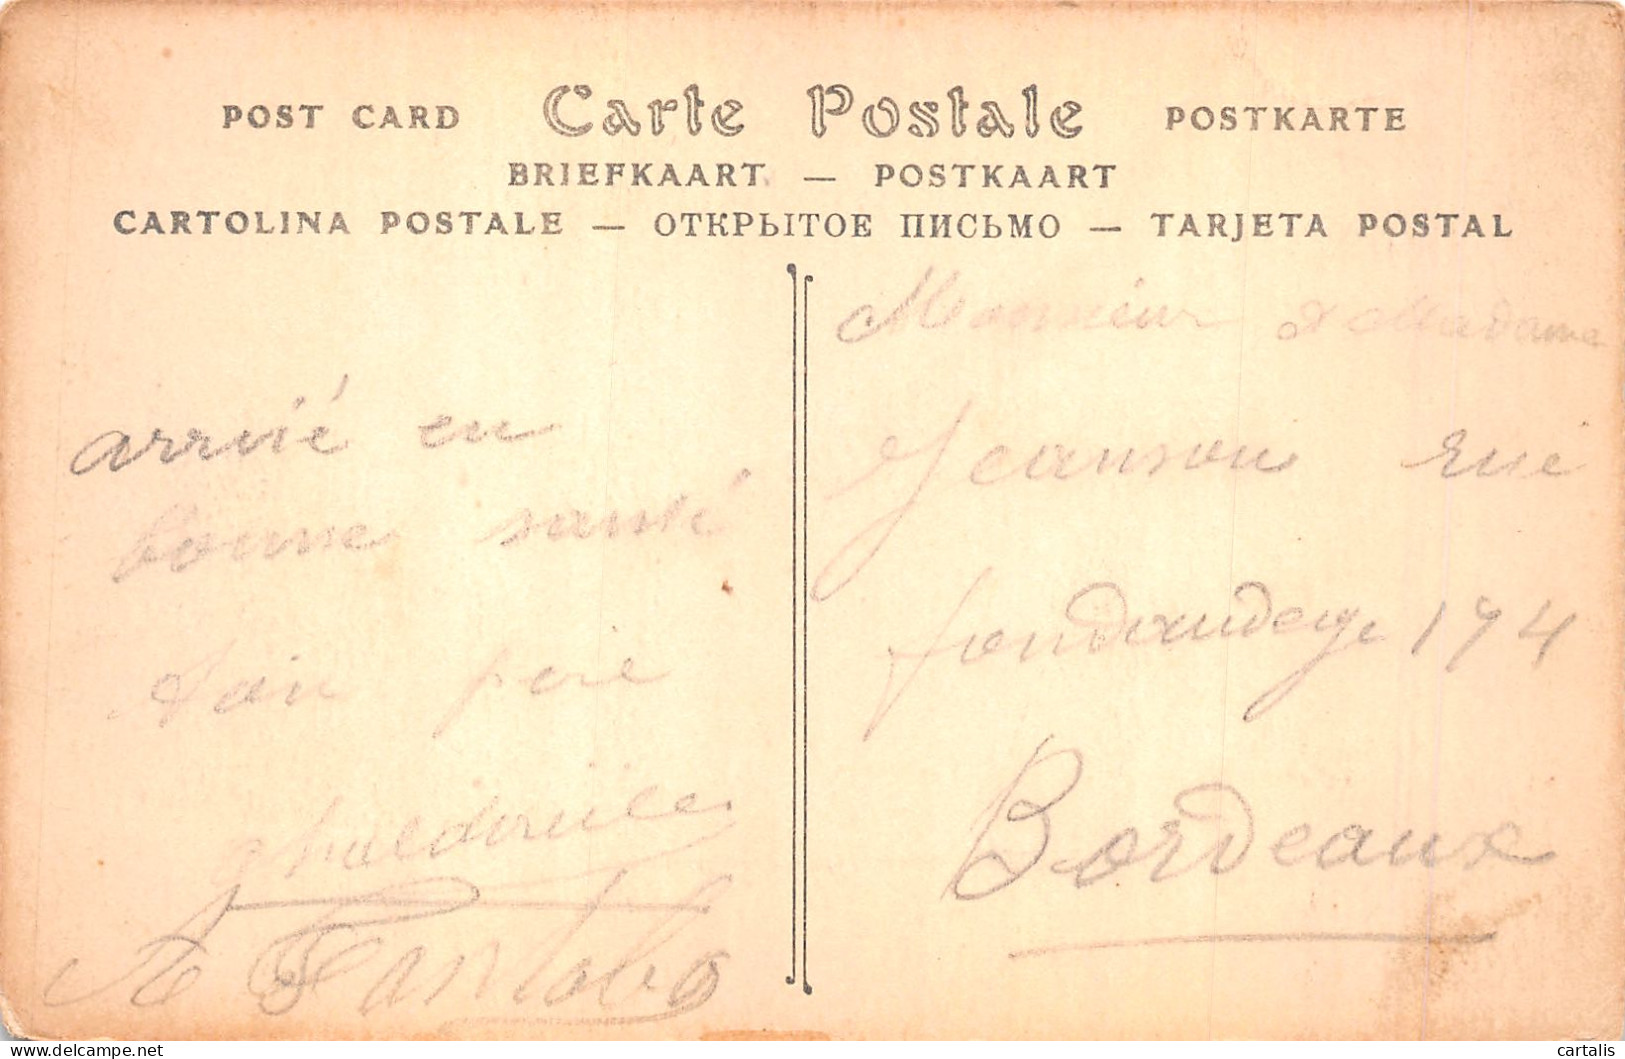 POST CARD Carte Postale POSTKARTE
BRIEFKAART — POSTKAART
CARTOLINA POSTALE — ОТКРЫТОЕ ПИСЬМО — TARJETA POSTAL
arrivé en
bonne santé
père
Monsieur & Madame
Jeanson rue
fondaudege 174
Bordeaux
cartalis